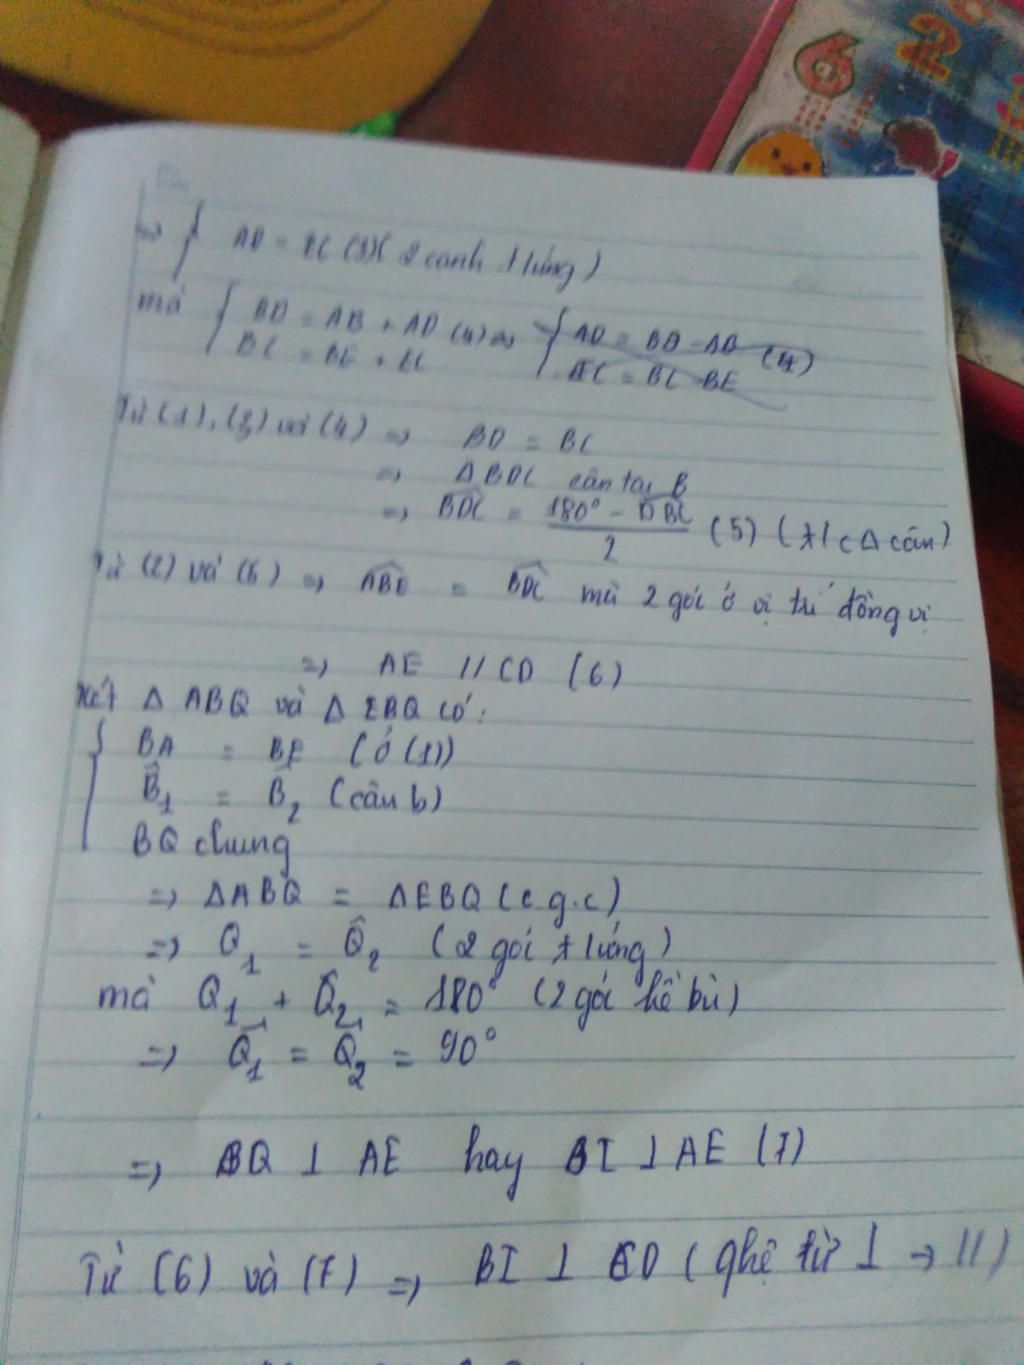 => { AD = EC (3) (2 cạnh t/ứng)
mà { BD = AB + AD (4) => { AD = BD - AB (4)
BC = BE + EC EC = BC - BE
Từ (1), (3) và (4) => BD = BC
=> Δ BDC cân tại B
=> BDC = 180° - DBC / 2 (5) (t/c Δ cân)
Từ (2) và (5) => ABE = BDC mà 2 góc ở vị trí đồng vị
=> AE // CD (6)
Xét Δ ABQ và Δ EBQ có:
BA = BE (ở (1))
B̂1 = B̂2 (câu b)
BQ chung
=> ΔABQ = ΔEBQ (c.g.c)
=> Q1 = Q̂2 (2 góc t ứng)
mà Q1 + Q̂2 = 180° (2 góc kề bù)
=> Q̂1 = Q̂2 = 90°
=> BQ ⊥ AE hay BI ⊥ AE (7)
Từ (6) và (7) => BI ⊥ CD (qhệ từ ⊥ -> //)
6
20